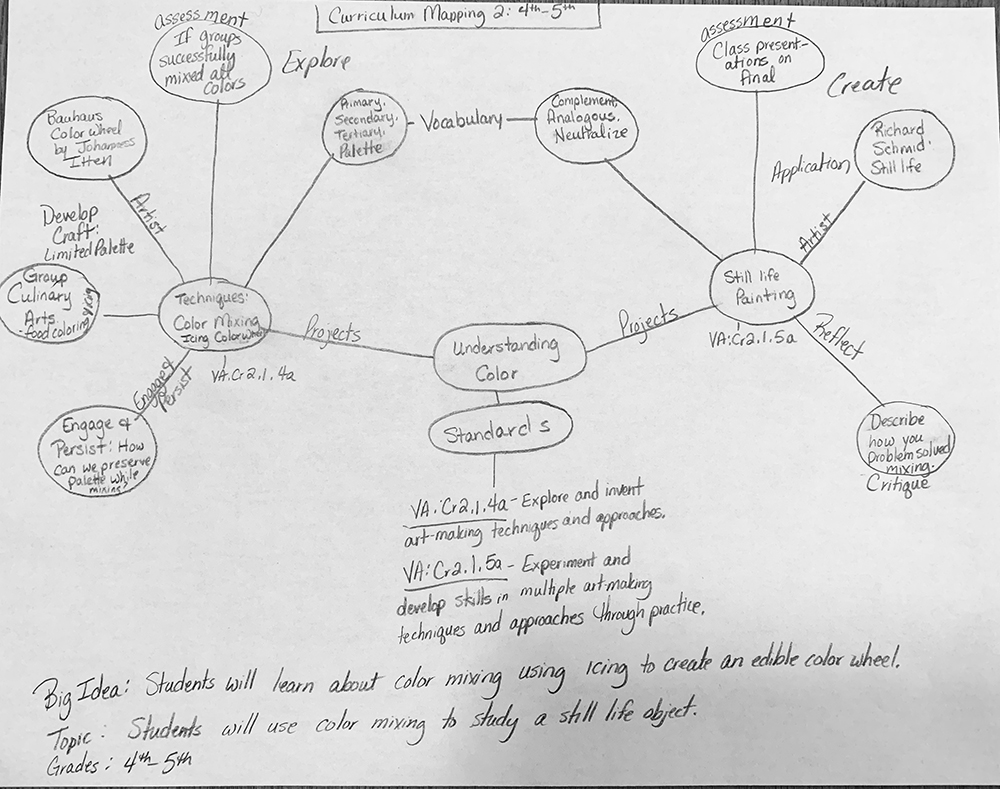 Curriculum Mapping 2: 4th-5th
assessment
If groups
successfully
mixed all
colors
Explore
assessment
Class present-
ations on
final
Create
Bauhaus
Color wheel
by Johannes
Itten
Artist
Primary,
Secondary,
Tertiary,
Palette
Vocabulary
Complement,
Analogous,
Neutralize
Richard
Schmid:
Still life
Application
Artist
Develop
Craft:
Limited Palette
Group
Culinary
Arts
-Food coloring
& icing
Techniques:
Color Mixing
Icing Color Wheel
VA:Cr2.1.4a
Projects
Understanding
Color
Projects
Still life
Painting
VA:Cr2.1.5a
Reflect
Engage &
Persist
Engage &
Persist: How
can we preserve
palette while
mixing?
Describe
how you
problem solved
mixing.
Critique
Standards
VA:Cr2.1.4a - Explore and invent
art-making techniques and approaches.
VA:Cr2.1.5a - Experiment and
develop skills in multiple art-making
techniques and approaches through practice.
Big Idea: Students will learn about color mixing using icing to create an edible color wheel.
Topic: Students will use color mixing to study a still life object.
Grades: 4th-5th